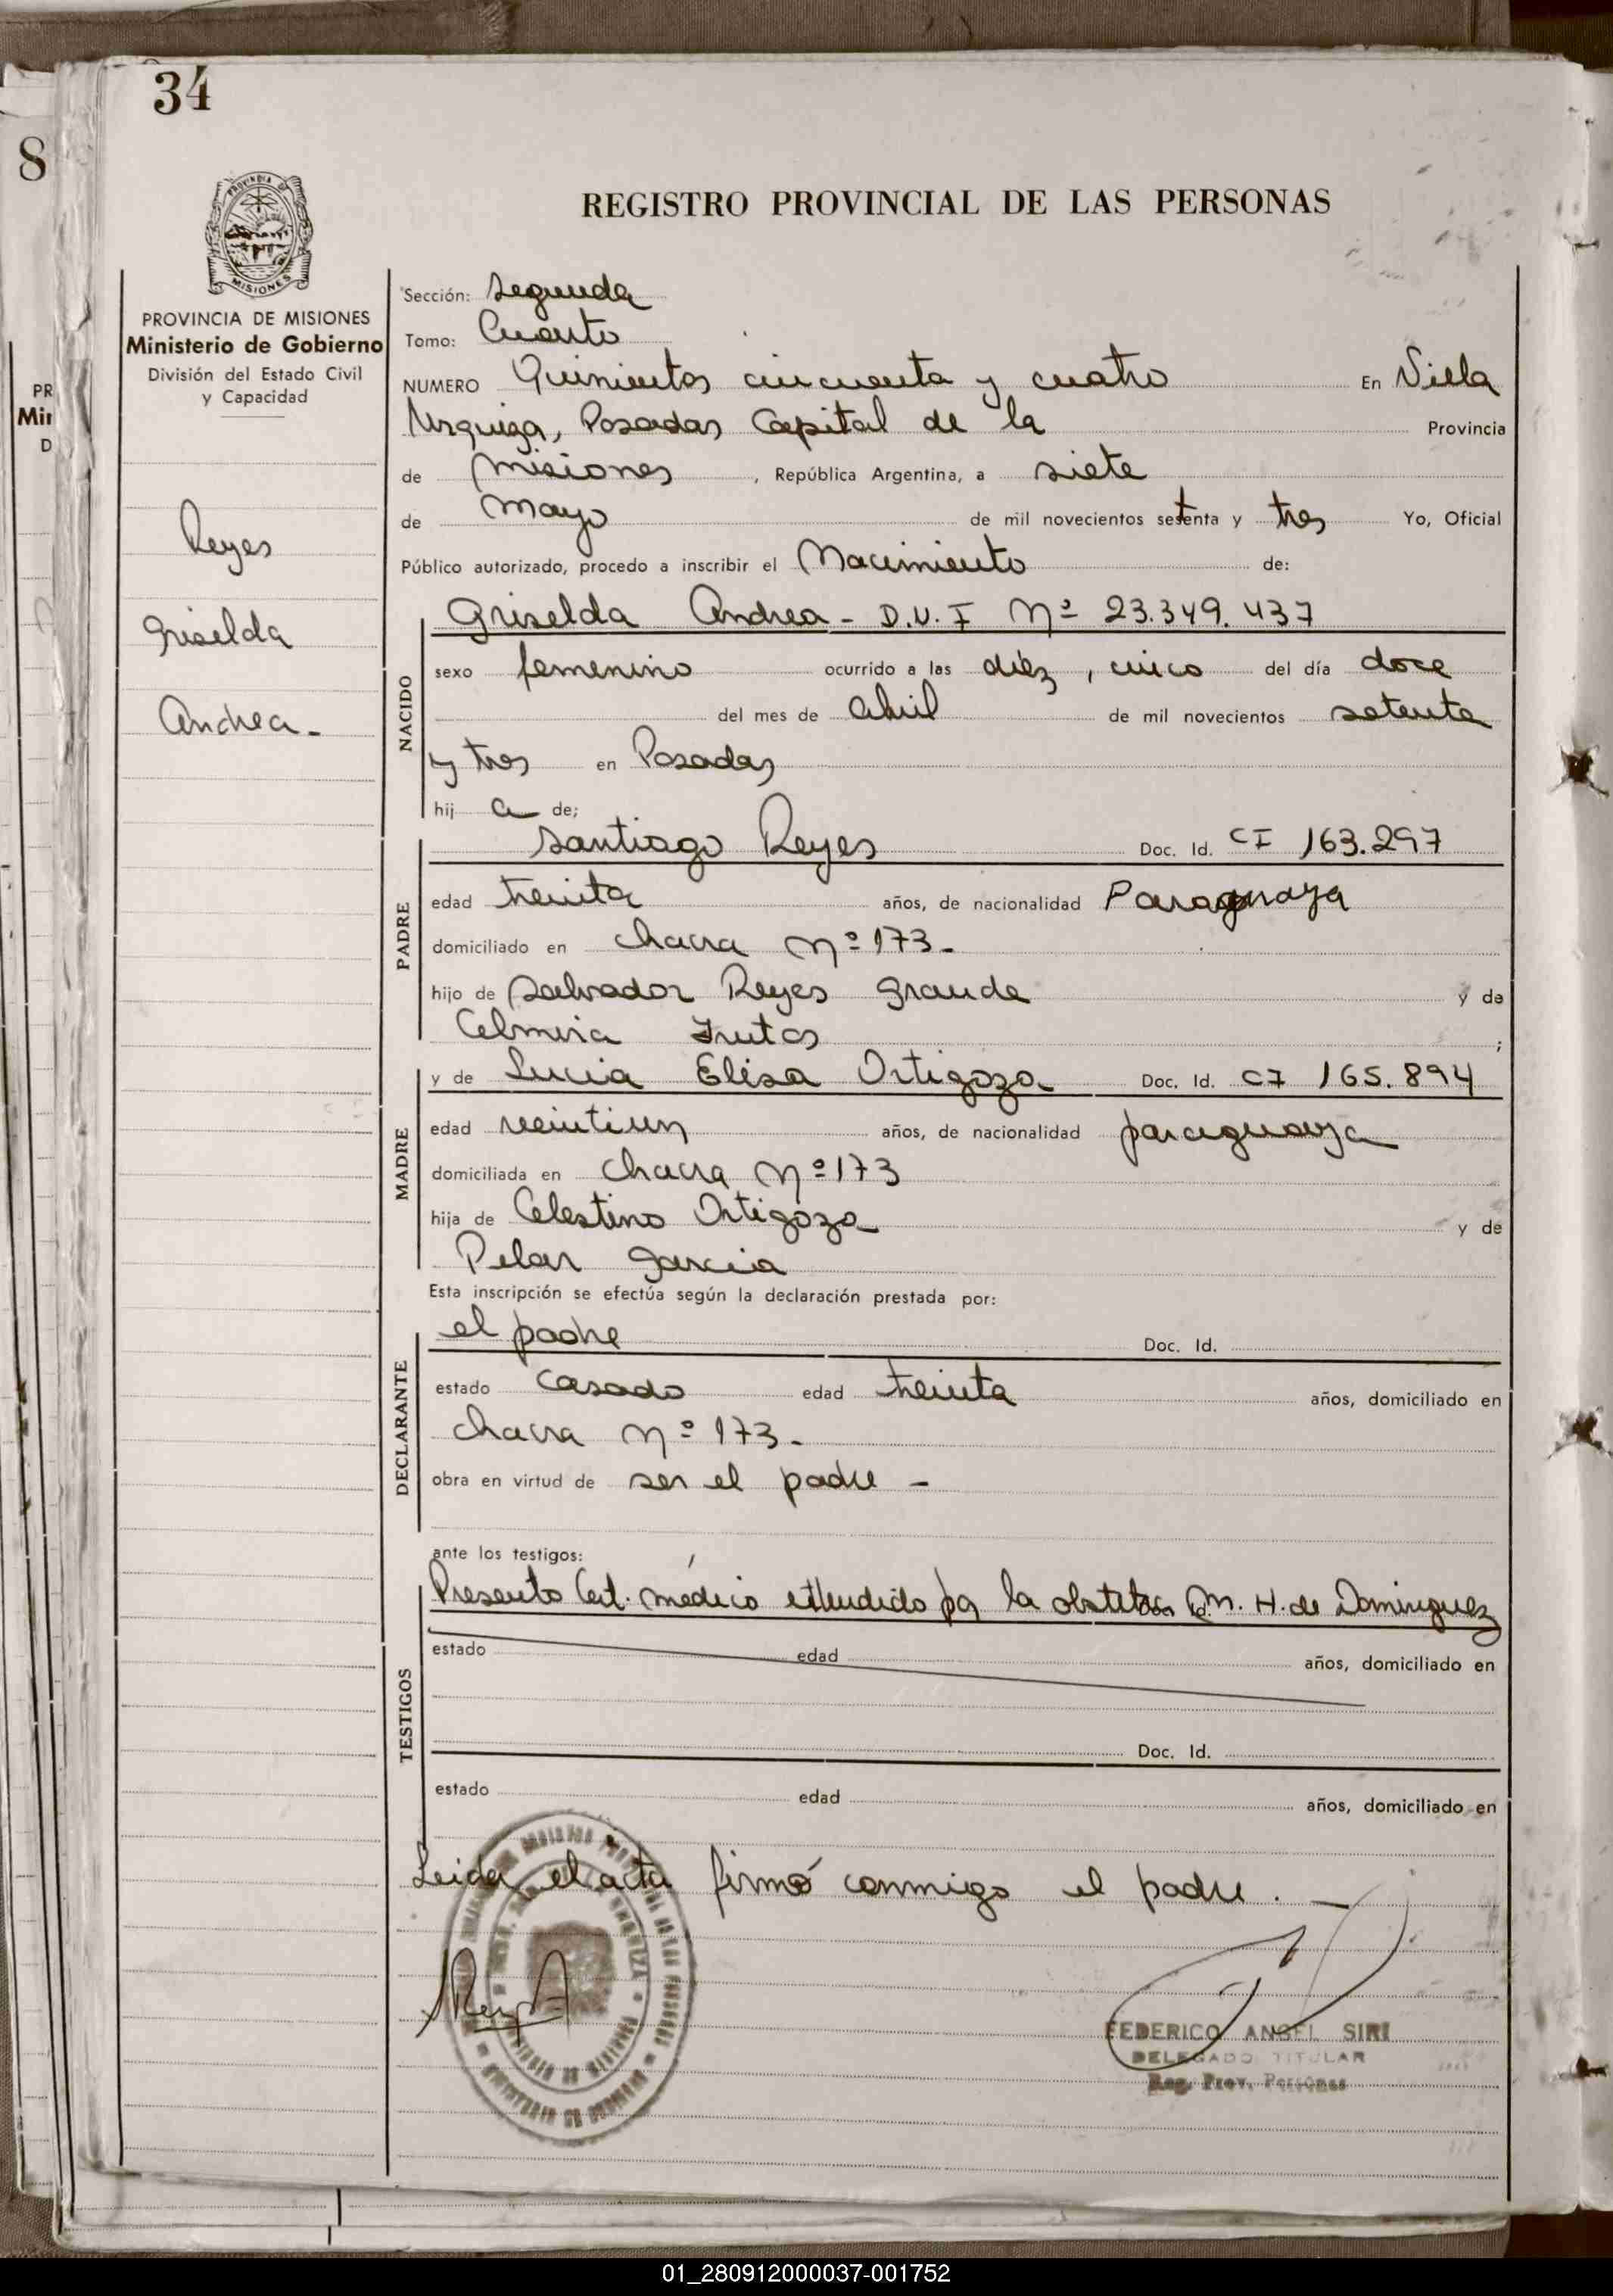 34
8
REGISTRO PROVINCIAL DE LAS PERSONAS
PROVINCIA DE
MISIONES
PROVINCIA DE MISIONES
Ministerio de Gobierno
División del Estado Civil
y Capacidad
PR
Min
D
Reyes
Griselda
Andrea-
Sección: Segunda
Tomo: Cuarto
NUMERO Quinientos cincuenta y cuatro En Villa
Urquiza, Posadas Capital de la Provincia
de Misiones, República Argentina, a siete
de Mayo de mil novecientos setenta y tres Yo, Oficial
Público autorizado, procedo a inscribir el Nacimiento de:
NACIDO
Griselda Andrea - D.U.I Nº 23.349.437
sexo femenino ocurrido a las diéz, cinco del día doce
del mes de abril de mil novecientos setenta
y tres en Posadas
hij a de;
PADRE
Santiago Reyes Doc. Id. CI 163.297
edad treinta años, de nacionalidad Paraguaya
domiciliado en chacra Nº 173-
hijo de Salvador Reyes Grande y de
Celmira Frutos ;
MADRE
y de Lucia Elisa Ortigoza Doc. Id. CI 165.894
edad veintiun años, de nacionalidad paraguaya
domiciliada en chacra Nº 173
hija de Celestino Ortigoza y de
Pilar Garcia
Esta inscripción se efectúa según la declaración prestada por:
DECLARANTE
el padre Doc. Id.
estado Casado edad treinta años, domiciliado en
chacra Nº 173-
obra en virtud de ser el padre -
ante los testigos:
TESTIGOS
Presento Cert. médico extendido por la obstetra M. H. de Dominguez
estado edad años, domiciliado en
Doc. Id.
estado edad años, domiciliado en
Leida el acta firmó conmigo el padre. -
FEDERICO ANGEL SIRI
DELEGADO TITULAR
Reg. Prov. Personas
01_280912000037-001752